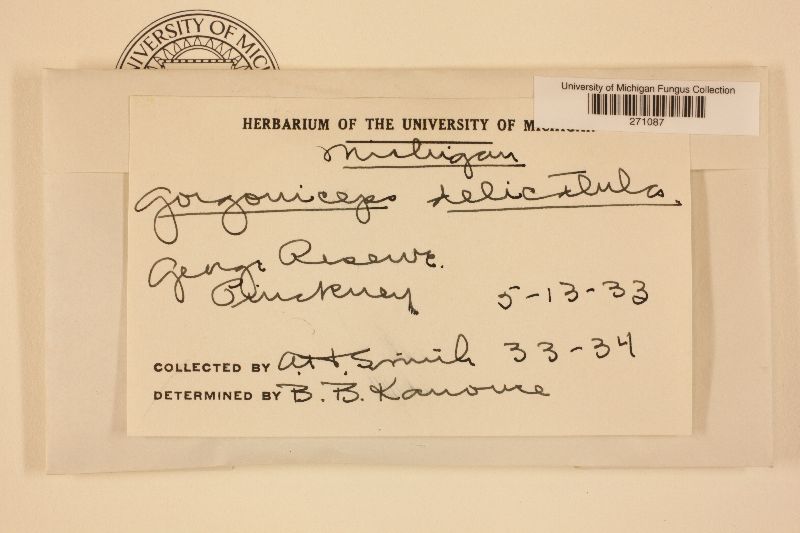 UNIVERSITY OF MICHI
University of Michigan Fungus Collection
271087
HERBARIUM OF THE UNIVERSITY OF MICHIGAN
Michigan
Gorgoniceps
George Reserve.
Pinckney 5-13-33
COLLECTED BY A.H. Smith 33-34
DETERMINED BY B. B. Kanouse